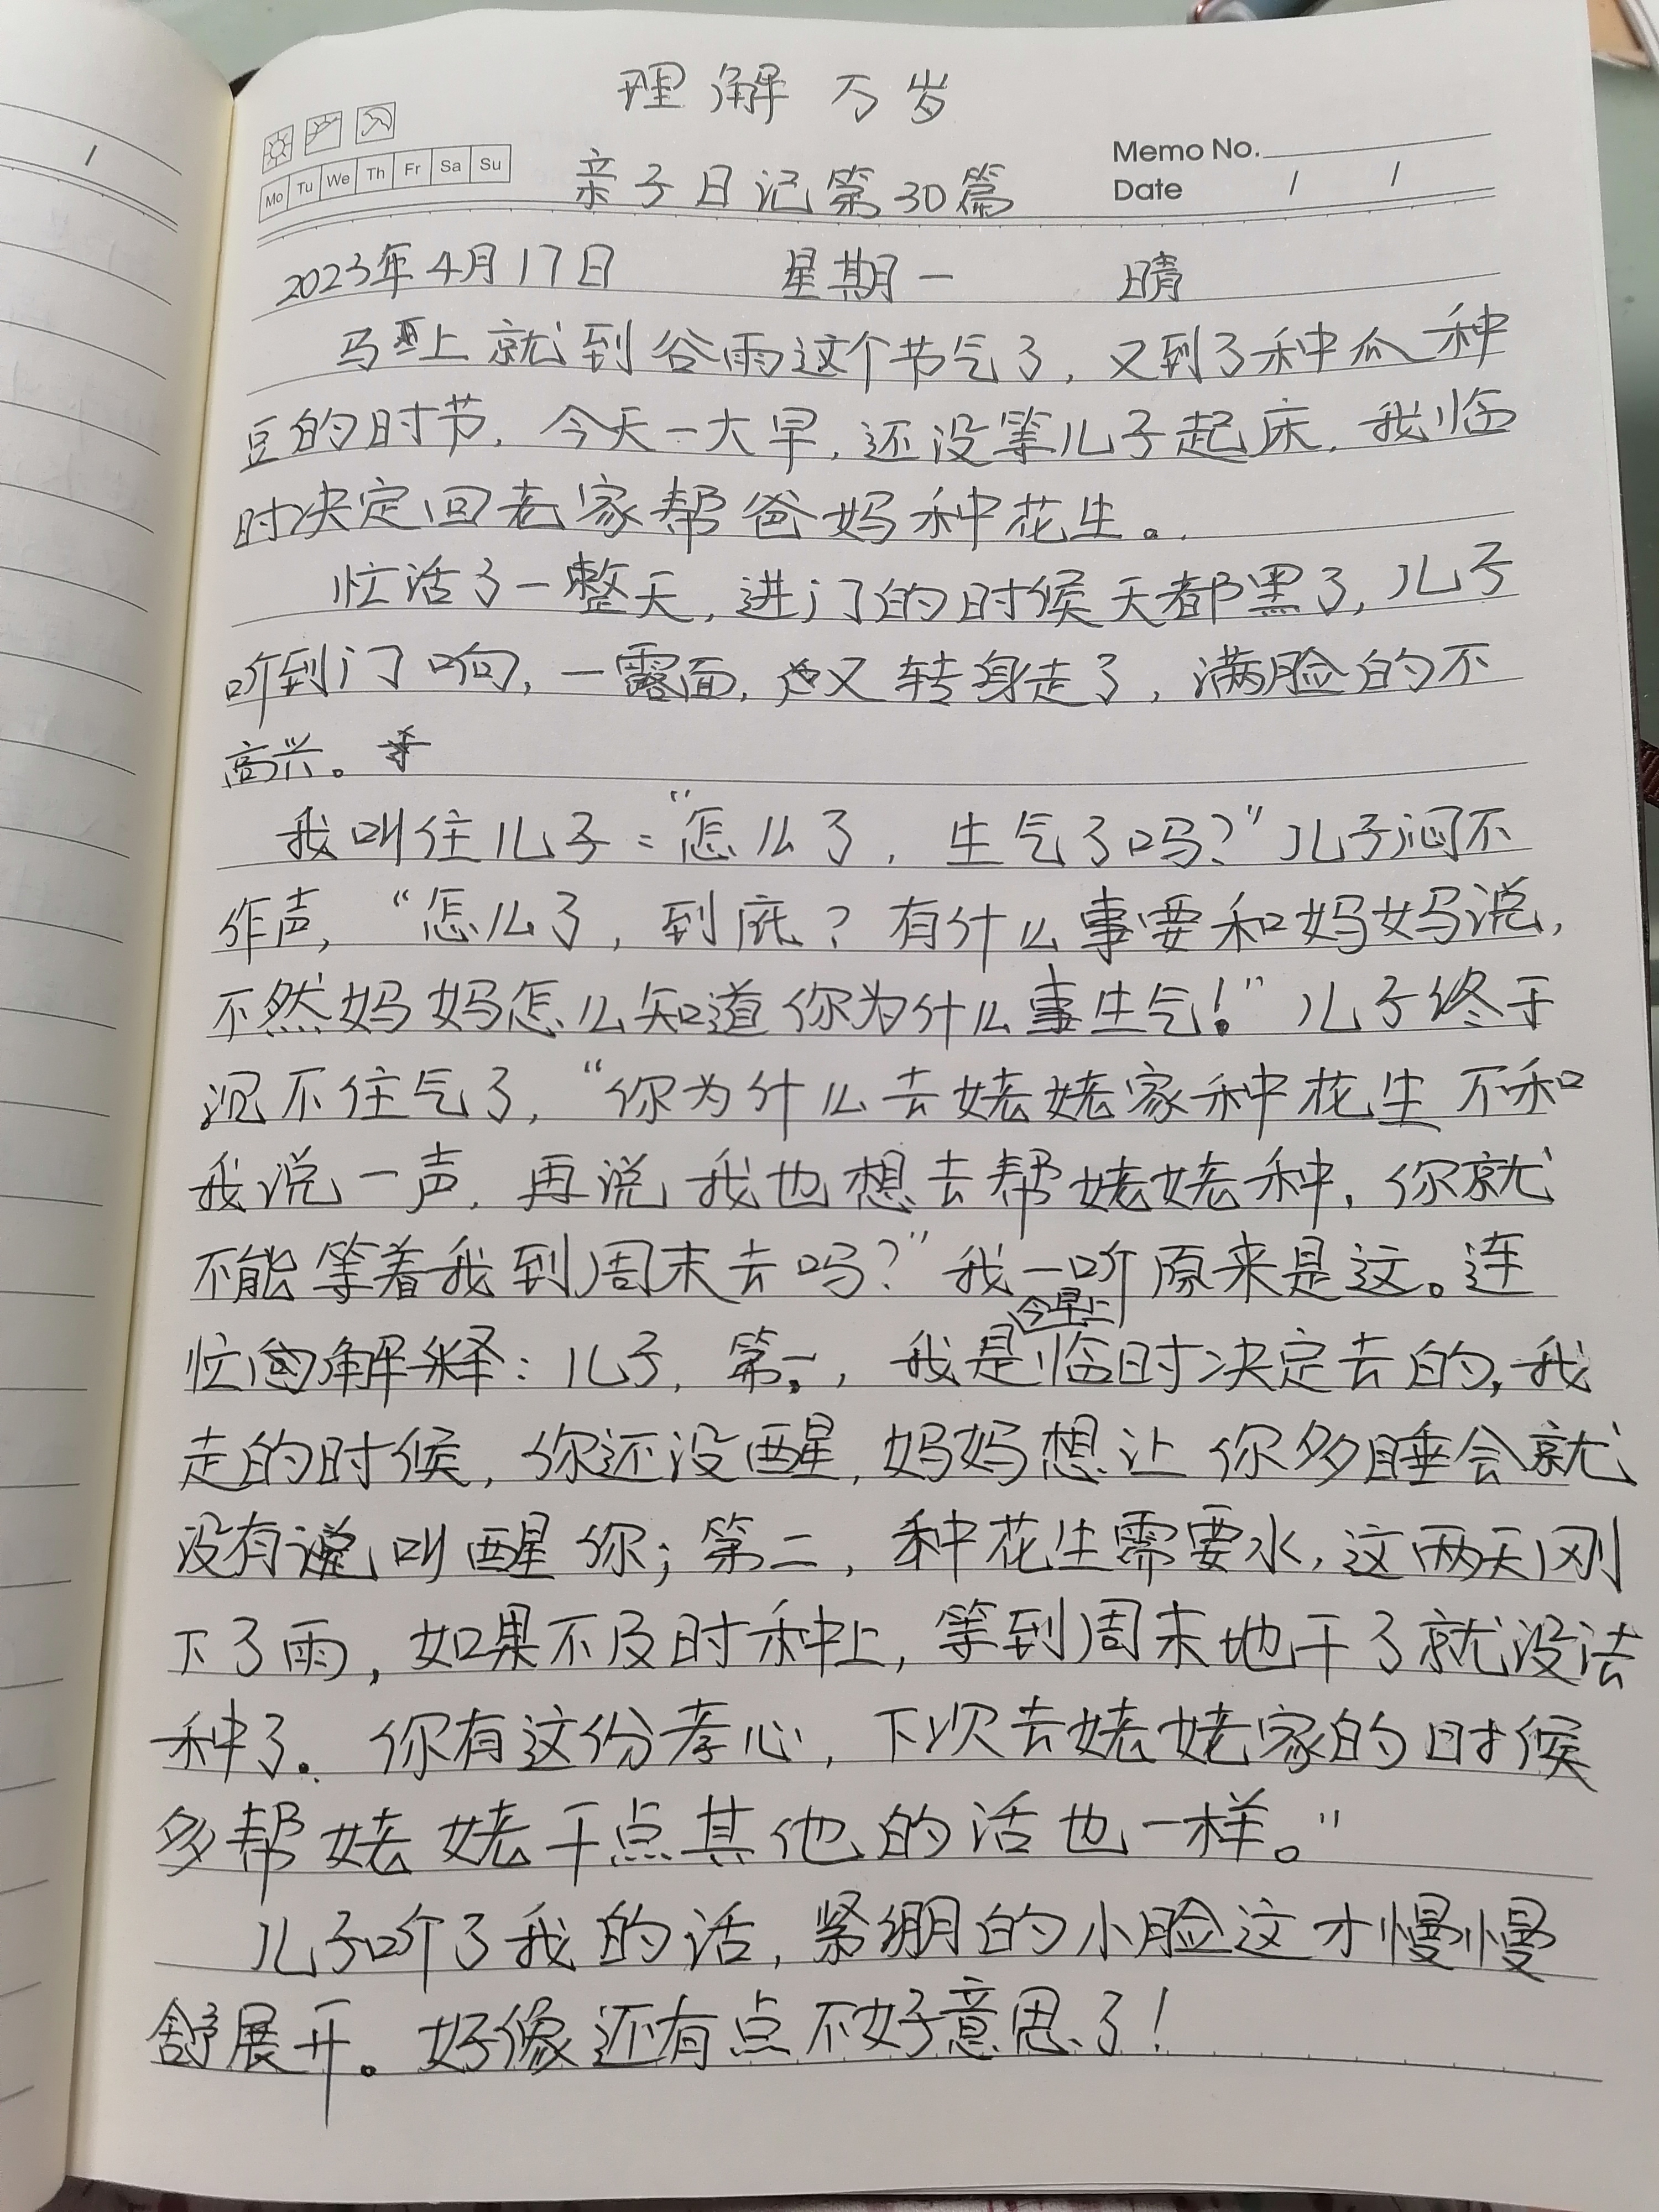 理解万岁
Memo No.
Mo Tu We Th Fr Sa Su
亲子日记第30篇
Date / /
2023年4月17日 星期一 晴
马上就到谷雨这个节气了，又到了种瓜种
豆的时节，今天一大早，还没等儿子起床，我临
时决定回老家帮爸妈种花生。
忙活了一整天，进门的时候天都黑了，儿子
听到门响，一露面，又转身走了，满脸的不
高兴。
我叫住儿子："怎么了，生气了吗？"儿子闷不
作声，"怎么了，到底？有什么事要和妈妈说，
不然妈妈怎么知道你为什么事生气！"儿子终于
沉不住气了，"你为什么去姥姥家种花生不和
我说一声，再说我也想去帮姥姥种，你就
不能等着我到周末去吗？"我一听原来是这。连
忙解释：儿子，第一，我是今早上临时决定去的，我
走的时候，你还没醒，妈妈想让你多睡会就
没有叫醒你；第二，种花生需要水，这两天刚
下了雨，如果不及时种上，等到周末地干了就没法
种了。你有这份孝心，下次去姥姥家的时候
多帮姥姥干点其他的活也一样。"
儿子听了我的话，紧绷的小脸这才慢慢
舒展开。好像还有点不好意思了！